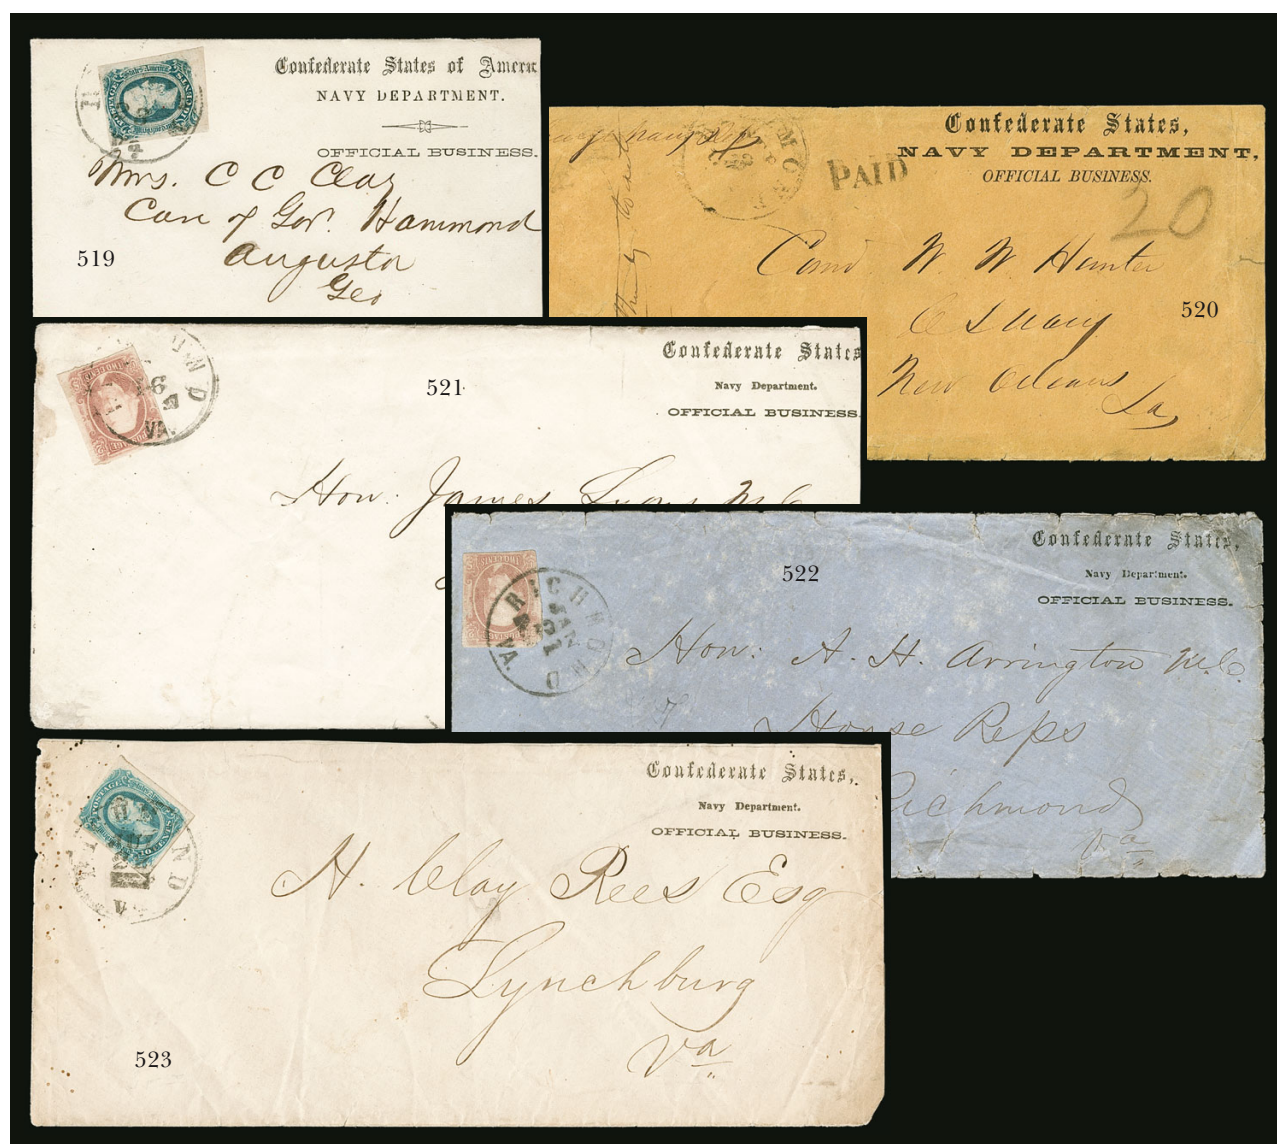 Confederate States of Americ
NAVY DEPARTMENT.
OFFICIAL BUSINESS.
Mrs. C C Clay
Care of Gov. Hammond
Augusta
Geo
519
Confederate States,
NAVY DEPARTMENT,
OFFICIAL BUSINESS.
PAID
20
Comd W. W. Hunter
C S Navy
New Orleans
La,
520
Confederate States
Navy Department.
OFFICIAL BUSINESS.
521
VA.
Hon. James Lyons M.C.
Confederate States,
Navy Department.
OFFICIAL BUSINESS.
522
RICHMOND
JAN
VA.
Hon: A. H. Arrington M.C.
House Reps
Richmond
Va
Confederate States,
Navy Department.
OFFICIAL BUSINESS.
POSTAGE
H. Clay Rees Esq
Lynchburg
Va
523